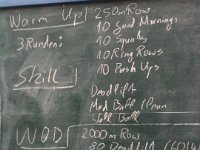 Warm Up 250m Row
10 Good Mornings
3 Runden: 10 Squats
10 Ring Rows
10 Push Ups
Skill Deadlift
Med Ball Clean
Wall Ball
WOD 2000m Row
80 Deadlift